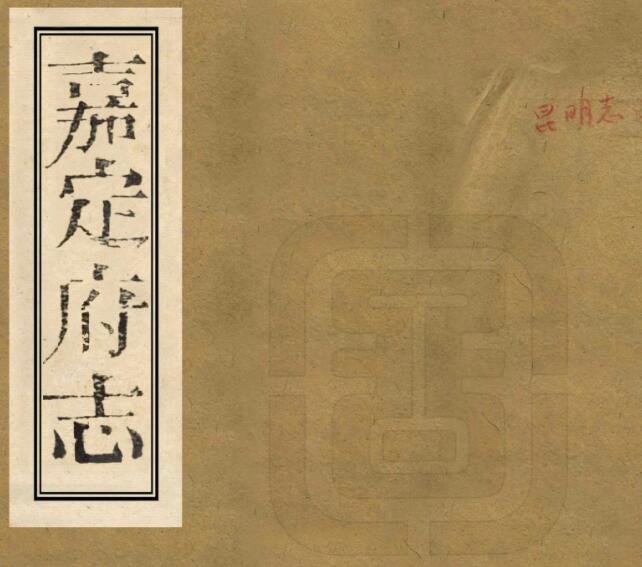 嘉定府志
昆明志